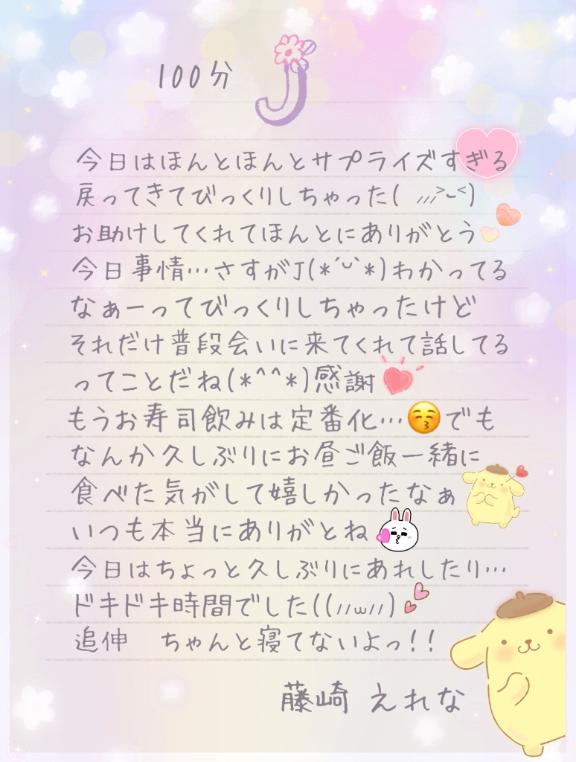 100分 J
今日はほんとほんとサプライズすぎる
戻ってきてびっくりしちゃった( ⸝⸝⸝>ᴗ<)
お助けしてくれてほんとにありがとう
今日事情…さすがJ(*´ᵕ`*)わかってる
なぁーってびっくりしちゃったけど
それだけ普段会いに来てくれて話してる
ってことだね(*^^*)感謝
もうお寿司飲みは定番化…😚でも
なんか久しぶりにお昼ご飯一緒に
食べた気がして嬉しかったなぁ
いつも本当にありがとね
今日はちょっと久しぶりにあれしたり…
ドキドキ時間でした((⸝⸝ω⸝⸝)
追伸　ちゃんと寝てないよっ!!
藤崎 えれな